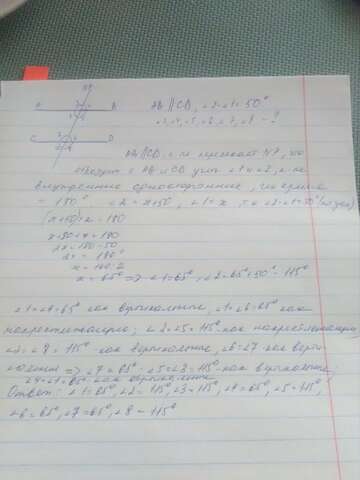 A B
C D
AB ∥ CD, ∠2-∠1=50°
∠3,∠4,∠5,∠6,∠7,∠8 - ?
AB ∥ CD и пересекает
AB и CD угл ∠1 и ∠2,
внутренние односторонние, их сумма
= 180° ∠2 = x+50, ∠1 = x, т.к ∠2-∠1=50°
(x+50)+x=180
x+50+x=180
2x=180-50
x = 65° => ∠1=65°, ∠2=65°+50°=115°
∠1=∠4=65° как вертикальные, ∠1=∠6=65° как
накрестлежащие, ∠2=∠5=115° как накрестлежащие,
115° как вертикальные, ∠6=∠7 как верти-
кальные => ∠7=65°. ∠5=∠8=115° как вертикальные;
∠4=∠1=65° как вертикальные
Ответ: ∠1=65°, ∠2=115°, ∠3=115°, ∠4=65°, ∠5=115°,
∠6=65°, ∠7=65°, ∠8=115°